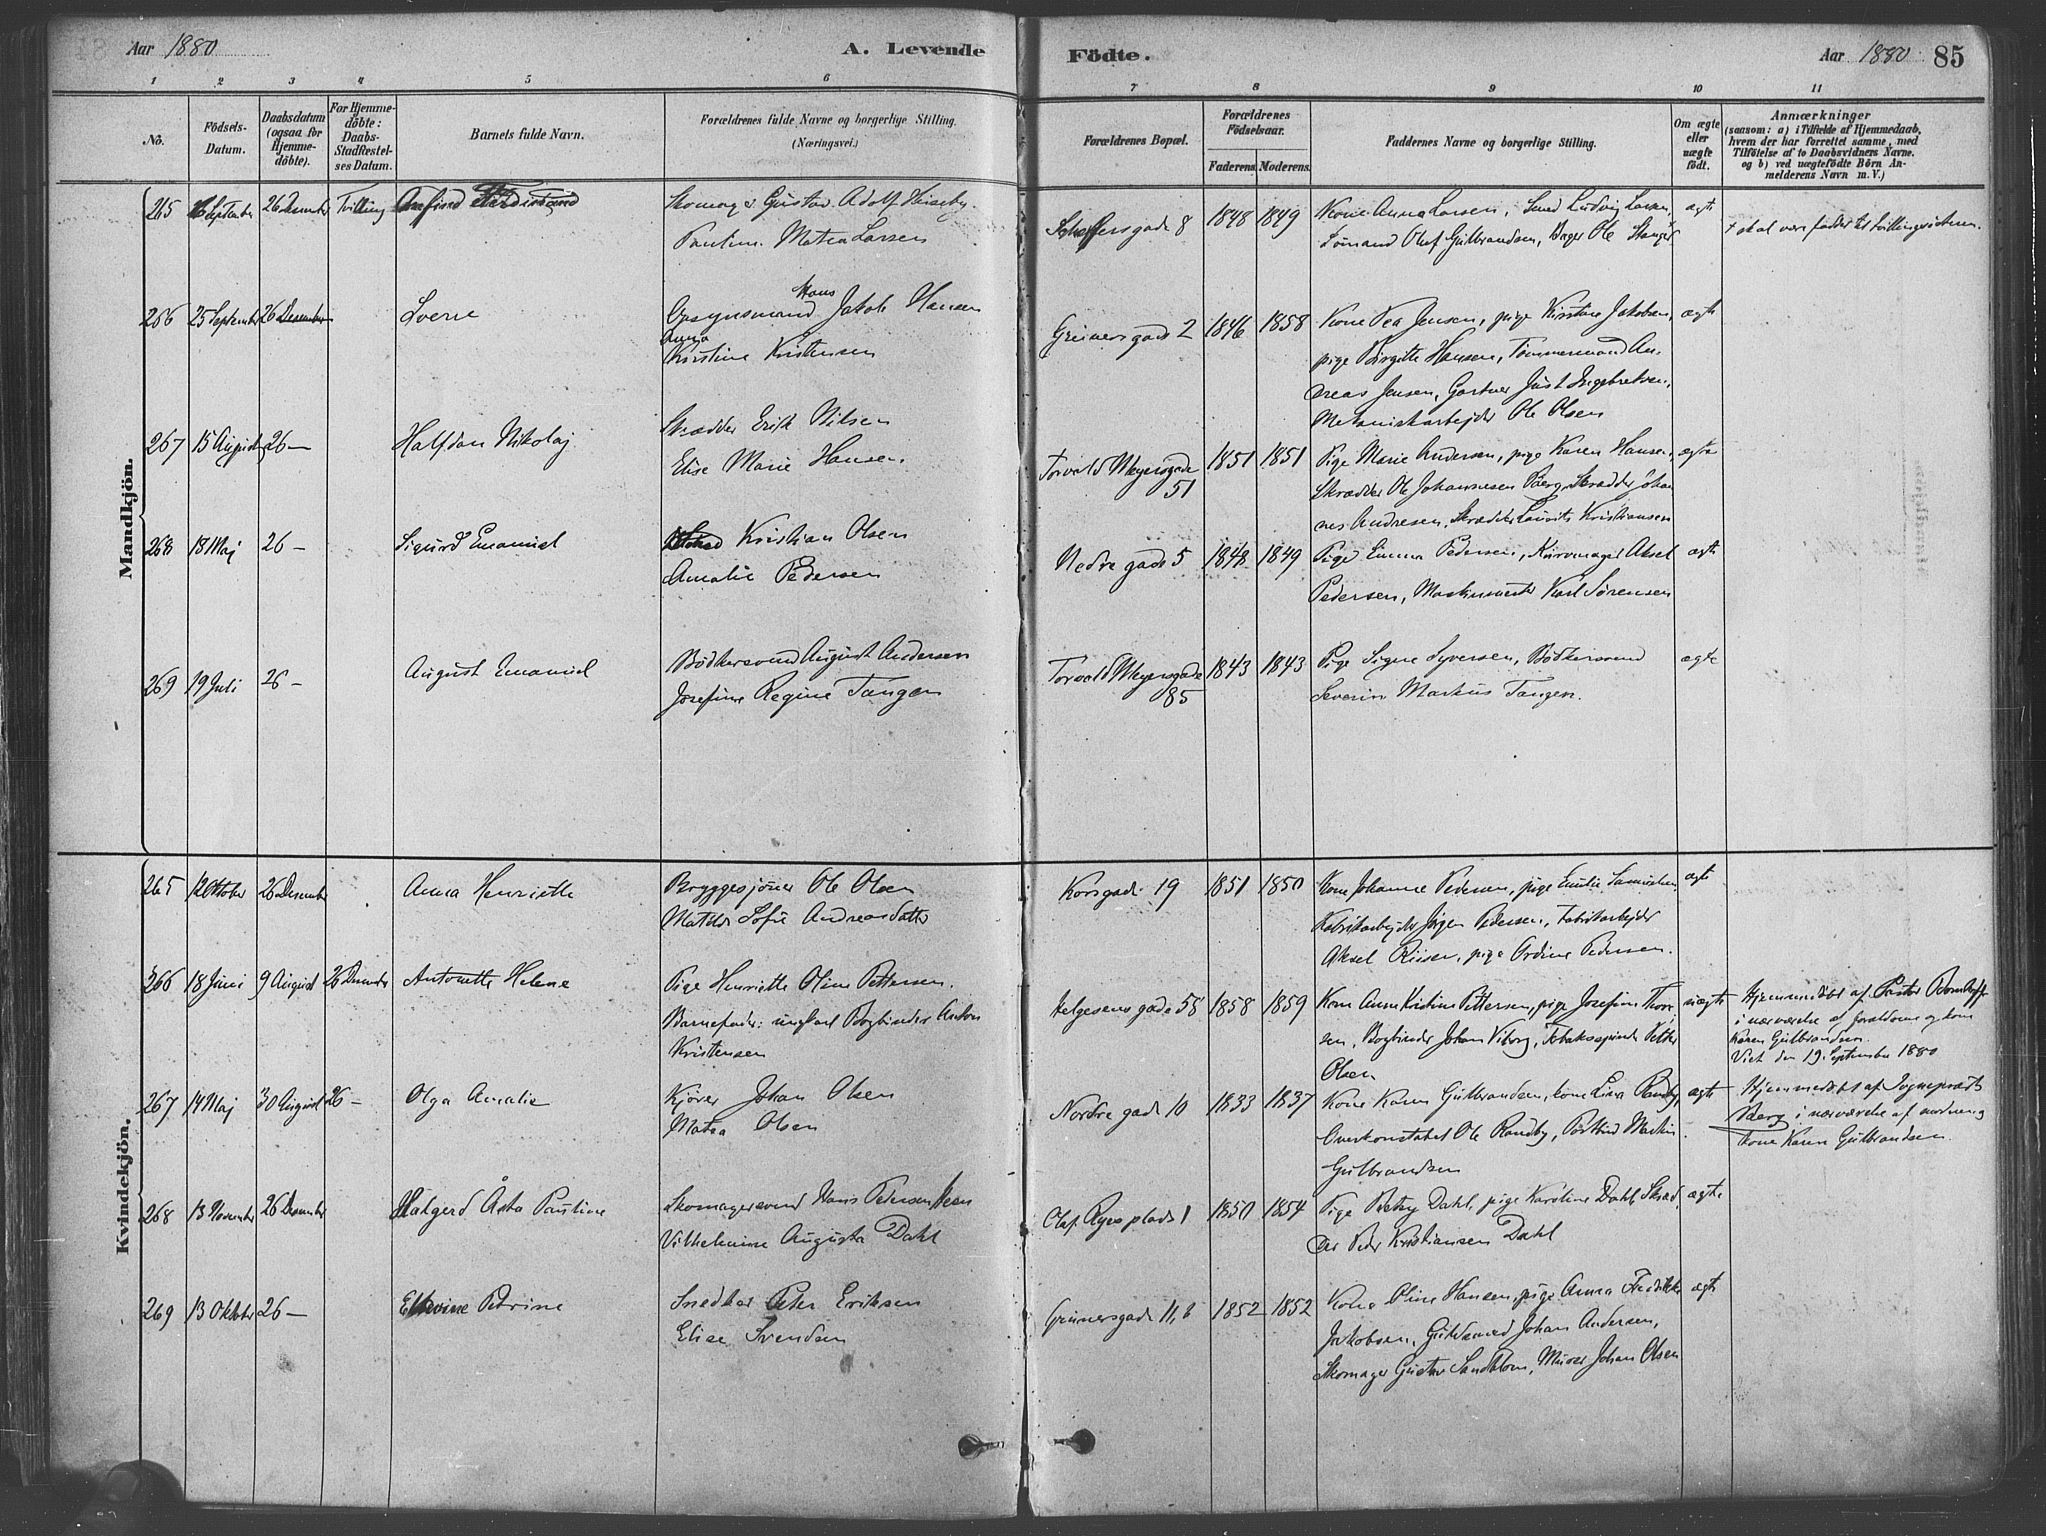 Aar 1880
A. Levende
Födte.
Aar 1880
85
1 2 3 4 5 6 7 8 9 10 11
No.
Födsels-
Datum.
Daabsdatum
(ogsaa for
Hjemme-
döbte).
For Hjemme-
döbte:
Daabs-
Stadfæstel-
ses Datum.
Barnets fulde Navn.
Forældrenes fulde Navne og borgerlige Stilling.
(Næringsvei.)
Forældrenes Bopæl.
Forældrenes
Födselsaar.
Faderens. Moderens.
Faddernes Navne og borgerlige Stilling.
Om ægte
eller
uægte
födt.
Anmærkninger
(saasom: a) i Tilfælde af Hjemmedaab,
hvem der har forrettet samme, med
Tilföielse af to Daabsvidners Navne.
og b) ved uægtefödte Börn An-
melderens Navn m. V.)
Mandkjön.
265 September 26 Desember Tvilling Ferdinand Skomager Gustav Adolf
Pauline Matea Larsen
Scheffersgade 8 1848 1849 Kone Anna Larsen, Smed Ludvig Larsen, ægte
Sømand Oluf Gulbrandsen, Bager Ole
+ skal være født før tvillingsøsteren.
266 25 September 26 Desember Sverre Opsynsmand Hans Jakob Hansen
Anna
Kirstine Kristensen
Grünersgade 2 1846 1858 Kone Pea Jensen, pige Kirstine Jakobsen, ægte
pige Birgitte Hansen, Tømmermand An-
dreas Jensen, Gartner Just Ingebretsen,
Mekaniskarbejder Ole Olsen
267 15 August 26 — Halfdan Nikolaj Skrædder Erik Nilsen
Elise Marie Hansen.
Torvald Meyersgade
51
1851 1851 Pige Marie Andersen, pige Karen Hansen, ægte
Skrædder Ole Johannesen Berg, Skrædder Johan
nes Andresen, Skrædder Laurits Kristiansen
268 18 Maj 26 — Sigurd Emanuel Kristian Olsen
Amalie Pedersen
Nedregade 5 1848 1849 Pige Emma Pedersen, Kurvmager Aksel ægte
Pedersen, Maskinmester Karl Sørensen
269 19 Juli 26 — August Emanuel Bødkersvend August Andersen
Josefine Regine Tangen
Torvald Meyersgade
85
1843 1843 Pige Signe Syversen, Bødkersvend ægte
Severin Markus Tangen.
Kvindekjön.
265 12 Oktober 26 Desember Anna Henriette Bryggesjouer Ole Olsen
Matilde Sofie Andreasdatter
Korsgade 19 1851 1850 Kone Johanne Pedersen, pige Emilie ægte
Fabrikarbejder Jørgen Pedersen, Fabrikarbejder
Aksel Riiser, pige Ordine Pedersen.
266 18 Juni 9 August 26 Desember Antonette Helene Pige Henriette Oline Pettersen.
Barnefader: ungkarl Bogbinder Anton
Kristensen
Helgesensgade 58 1858 1859 Kone Anne Kristine Pettersen, pige Josefine Thor- uægte
sen, Bogbinder Johan Viborg, Tobaksspinder Petter
Olsen
Hjemmedøbt af Pastor
i nærværelse af forældrene og kone
Karen Gulbrandsen.
Viet den 19. September 1880
267 14 Maj 30 August 26 — Olga Amalie Kjører Johan Olsen
Matea Olsen
Nordregade 10 1833 1837 Kone Karen Gulbrandsen, kone Lina Randby, ægte
Overkonstabel Ole Randby, Postbud Martin
Gulbrandsen
Hjemmedøbt af Sognepræst
Berg i nærværelse af moderen og
kone Karen Gulbrandsen.
268 13 November 26 Desember Halgerd Åsta Pauline Skomagersvend Hans Pedersen Steen
Vilhelmine Augusta Dahl
Olaf Ryes plads 1 1850 1854 Pige Betsy Dahl, pige Karstine Dahl, Skræd- ægte
der Peder Kristiansen Dahl
269 13 Oktober 26 — Petrine Snedker Peter Eriksen
Elise Svendsen
Grünersgade 11,b 1852 1852 Kone Oline Hansen, pige Anna Fredrikke ægte
Jakobsen, Guldsmed Johan Andersen,
Skomager Gustav Sandblom, Murer Johan Olsen